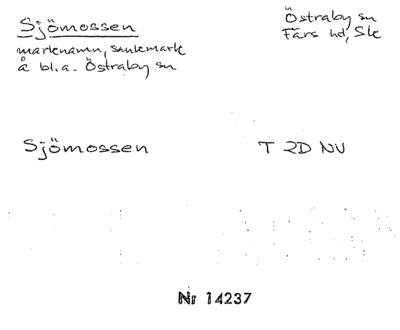 Sjömossen
Östraby sn
Färs hd, Sk
marknamn, sankmark
å bl.a. Östraby sn
Sjömossen
T 2D NV
Nr 14237